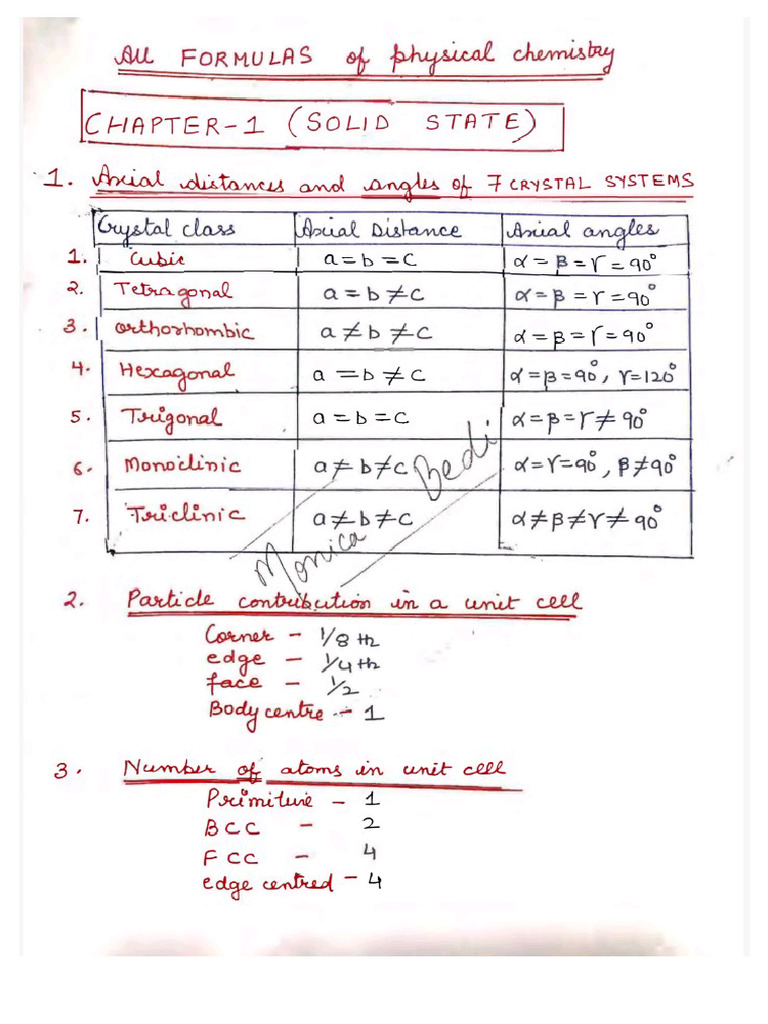 All FORMULAS of physical chemistry
CHAPTER-1 (SOLID STATE)
1. Axial distances and angles of 7 CRYSTAL SYSTEMS
Crystal class Axial Distance Axial angles
1. Cubic a=b=c α=β=γ=90°
2. Tetragonal a=b≠c α=β=γ=90°
3. Orthorhombic a≠b≠c α=β=γ=90°
4. Hexagonal a=b≠c α=β=90°, γ=120°
5. Trigonal a=b=c α=β=γ≠90°
6. Monoclinic a≠b≠c α=γ=90°, β≠90°
7. Triclinic a≠b≠c α≠β≠γ≠90°
Monica Bedi
2. Particle contribution in a unit cell
Corner - 1/8 th
edge - 1/4th
face - 1/2
Body centre - 1
3. Number of atoms in unit cell
Primitive - 1
BCC - 2
FCC - 4
edge centred - 4